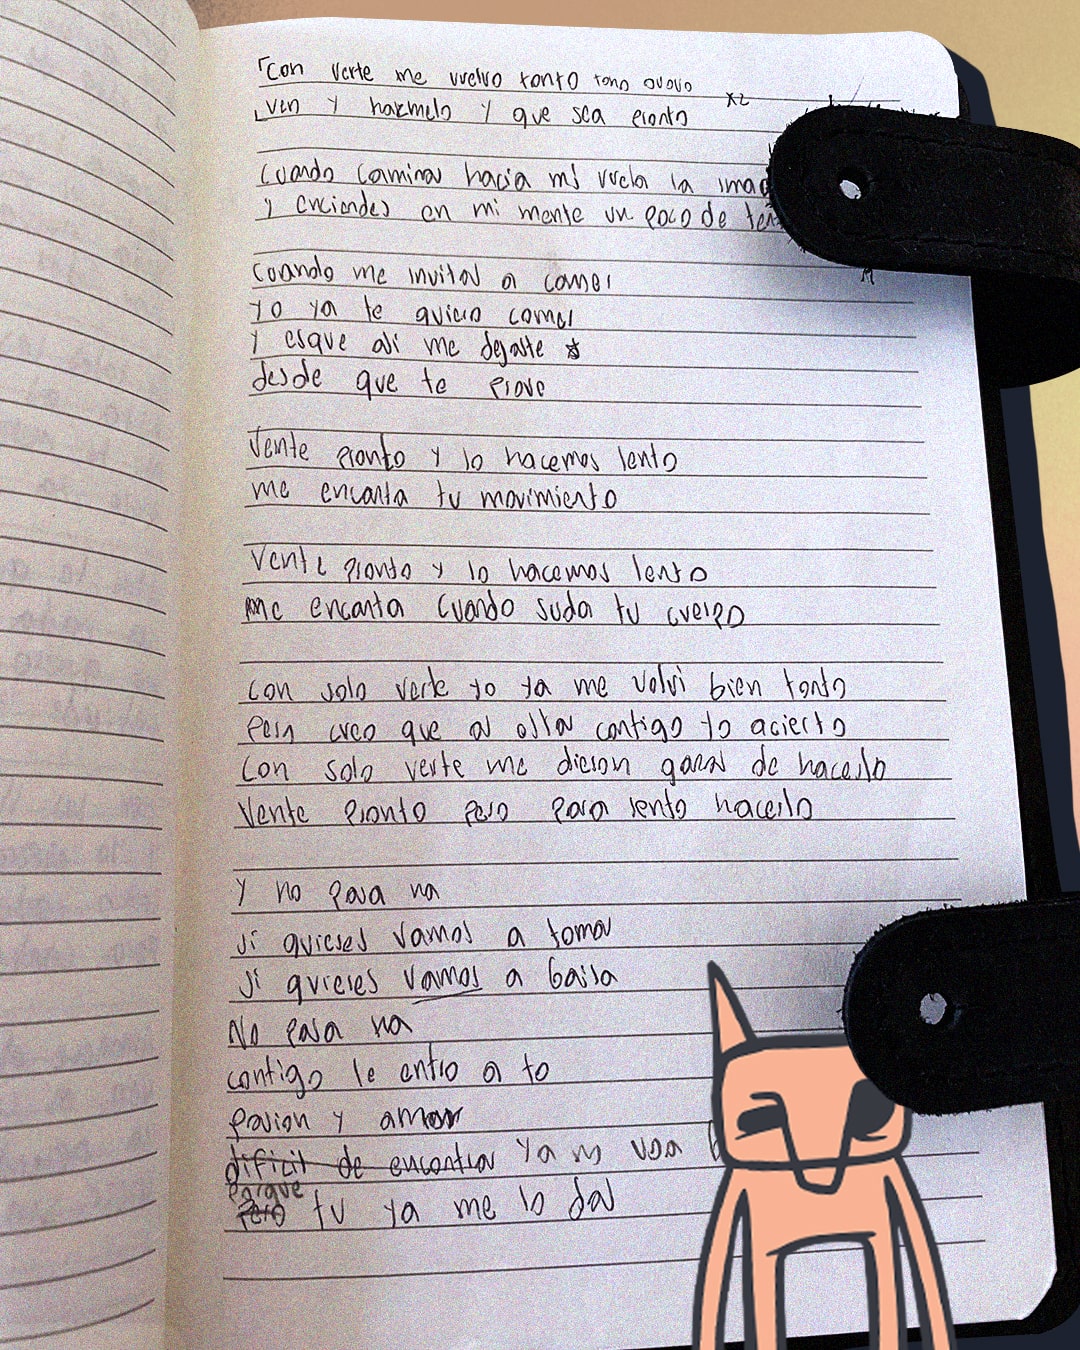 Con verte me vuelvo tonto tono ovovo x2
ven y hazmelo y que sea pronto
Cuando caminas hacia mi vuela la
y enciendes en mi mente un poco de
Cuando me invitas a comer
yo ya te quiero comer
y esque asi me dejaste
desde que te probe
Vente pronto y lo hacemos lento
me encanta tu movimiento
Vente pronto y lo hacemos lento
me encanta cuando suda tu cuerpo
Con solo verte yo ya me volvi bien tonto
Pero creo que al estar contigo yo acierto
Con solo verte me dieron ganas de hacerlo
Vente pronto pero para lento hacerlo
Y no pasa na
si quieres vamos a tomar
si quieres vamos a baila
No pasa na
contigo le entro a to
pasion y amor
dificil de encontrar ya
porque pero tu ya me lo das